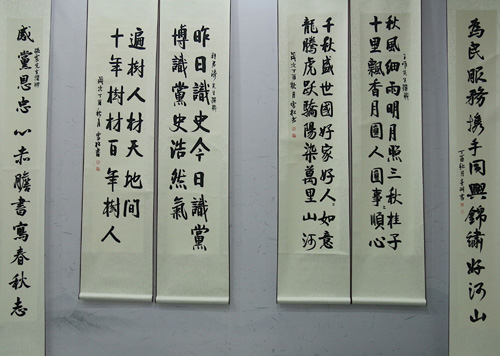 為民服務携手同興錦繡好河山
秋風細雨明月照三秋桂子
十里飄香月圓人圓事〻順心
千秋盛世國好家好人〻如意
龍騰虎跃驕陽染萬里山河
歲次丁酉秋月雲松書
昨日識史今日識黨
博識黨史浩然氣
遍樹人材天地間
十年樹材百年樹人
歲次丁酉秋月雲松書
感黨恩忠心赤膽書寫春秋志